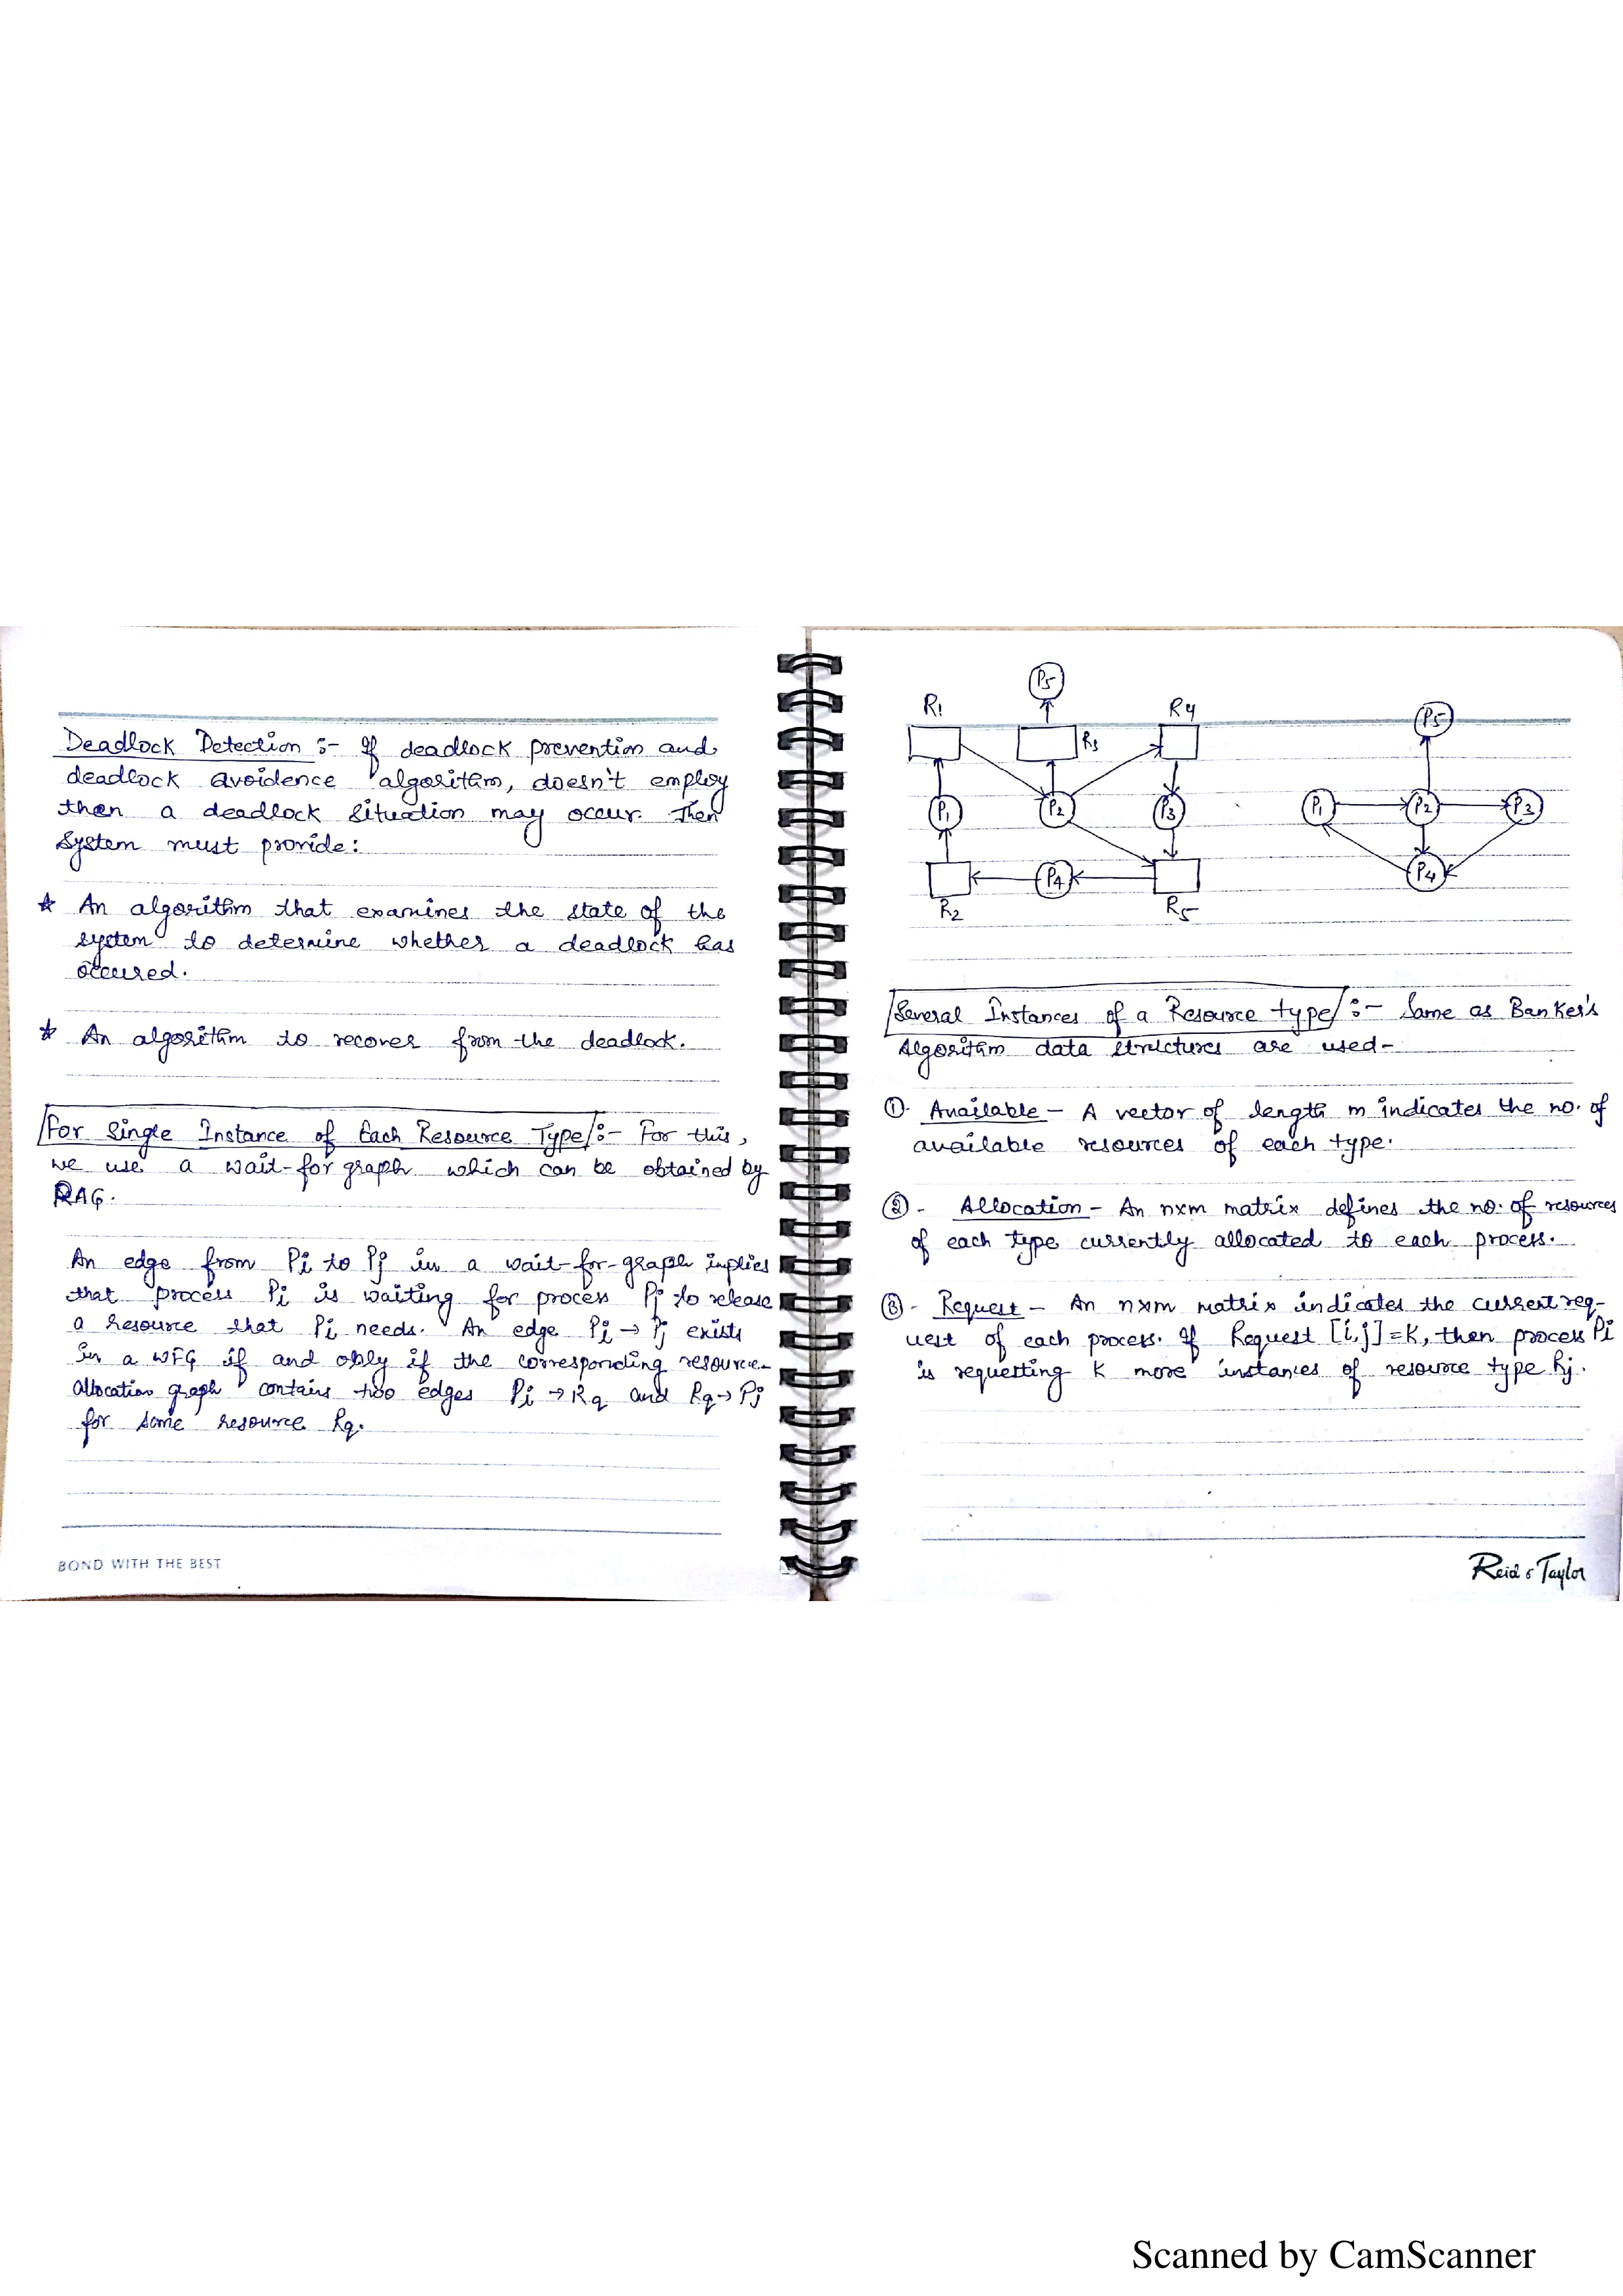 Deadlock Detection :- If deadlock prevention and
deadlock avoidence algorithm, doesn't employ
then a deadlock situation may occur. Then
system must provide:
☆ An algorithm that examines the state of the
system to determine whether a deadlock has
occured.
☆ An algorithm to recover from the deadlock.
For Single Instance of Each Resource Type :- For this,
we use a wait-for graph which can be obtained by
RAG.
An edge from Pi to Pj in a wait-for-graph implies
that process Pi is waiting for process Pj to release
a resource that Pi needs. An edge Pi → Pj exists
in a WFG if and only if the corresponding resource-
allocation graph contains two edges Pi → Rq and Rq → Pj
for some resource Rq.
BOND WITH THE BEST
P5
R1 R3 R4
P1 P2 P3
R2 P4 R5
P5
P1 P2 P3
P4
Several Instances of a Resource type :- Same as Banker's
Algorithm data structures are used-
①- Available - A vector of length m indicates the no. of
available resources of each type.
②- Allocation - An nxm matrix defines the no. of resources
of each type currently allocated to each process.
③- Request - An nxm matrix indicates the current req-
uest of each process. If Request [i,j]=K, then process Pi
is requesting K more instances of resource type Rj.
Reid & Taylor
Scanned by CamScanner